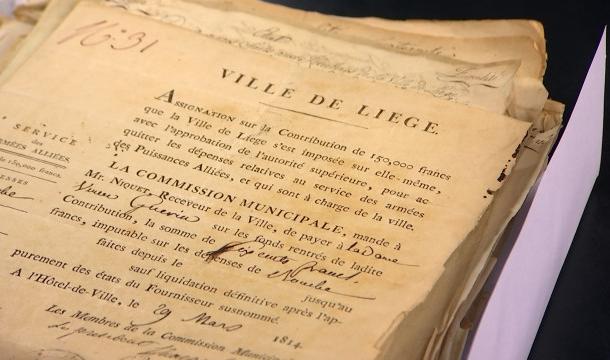 N°. 31
VILLE DE LIEGE.
ASSIGNATION sur la Contribution de 150,000 francs
que la Ville de Liege s'est imposée sur elle-même,
avec l'approbation de l'autorité supérieure, pour ac-
quitter les dépenses relatives au service des armées
des Puissances Alliées, et qui sont à charge de la ville.
LA COMMISSION MUNICIPALE, mande à
Mr. NIOUST, Receveur de la Ville, de payer à la Dame
sur les fonds rentrés de ladite
Contribution, la somme de
francs, imputable sur les dépenses de
faites depuis le jusqu'au
sauf liquidation définitive après l'ap-
purement des états du Fournisseur susnommé.
A l'Hôtel-de-Ville, le 29 Mars 1814.
Les Membres de la Commission Munici
SERVICE
des
ARMÉES ALLIÉES.
150,000 francs.